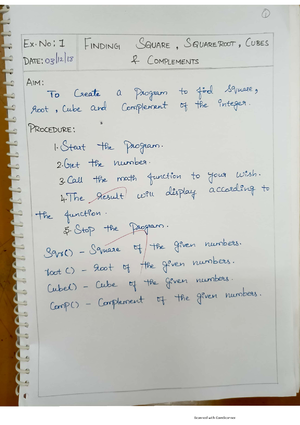 1
Ex. No: 1 FINDING SQUARE, SQUAREROOT, CUBES
DATE: 03/12/18 & COMPLEMENTS
AIM:
To Create a Program to find Square,
root, Cube and Complement of the integer.
PROCEDURE:
1. Start the Program.
2. Get the number.
3. Call the math function to your wish.
4. The result will display according to
the function.
5. Stop the Program.
Sqr() - Square of the given numbers.
root() - Root of the given numbers.
Cube() - Cube of the given numbers.
Comp() - Complement of the given numbers.
Scanned with CamScanner